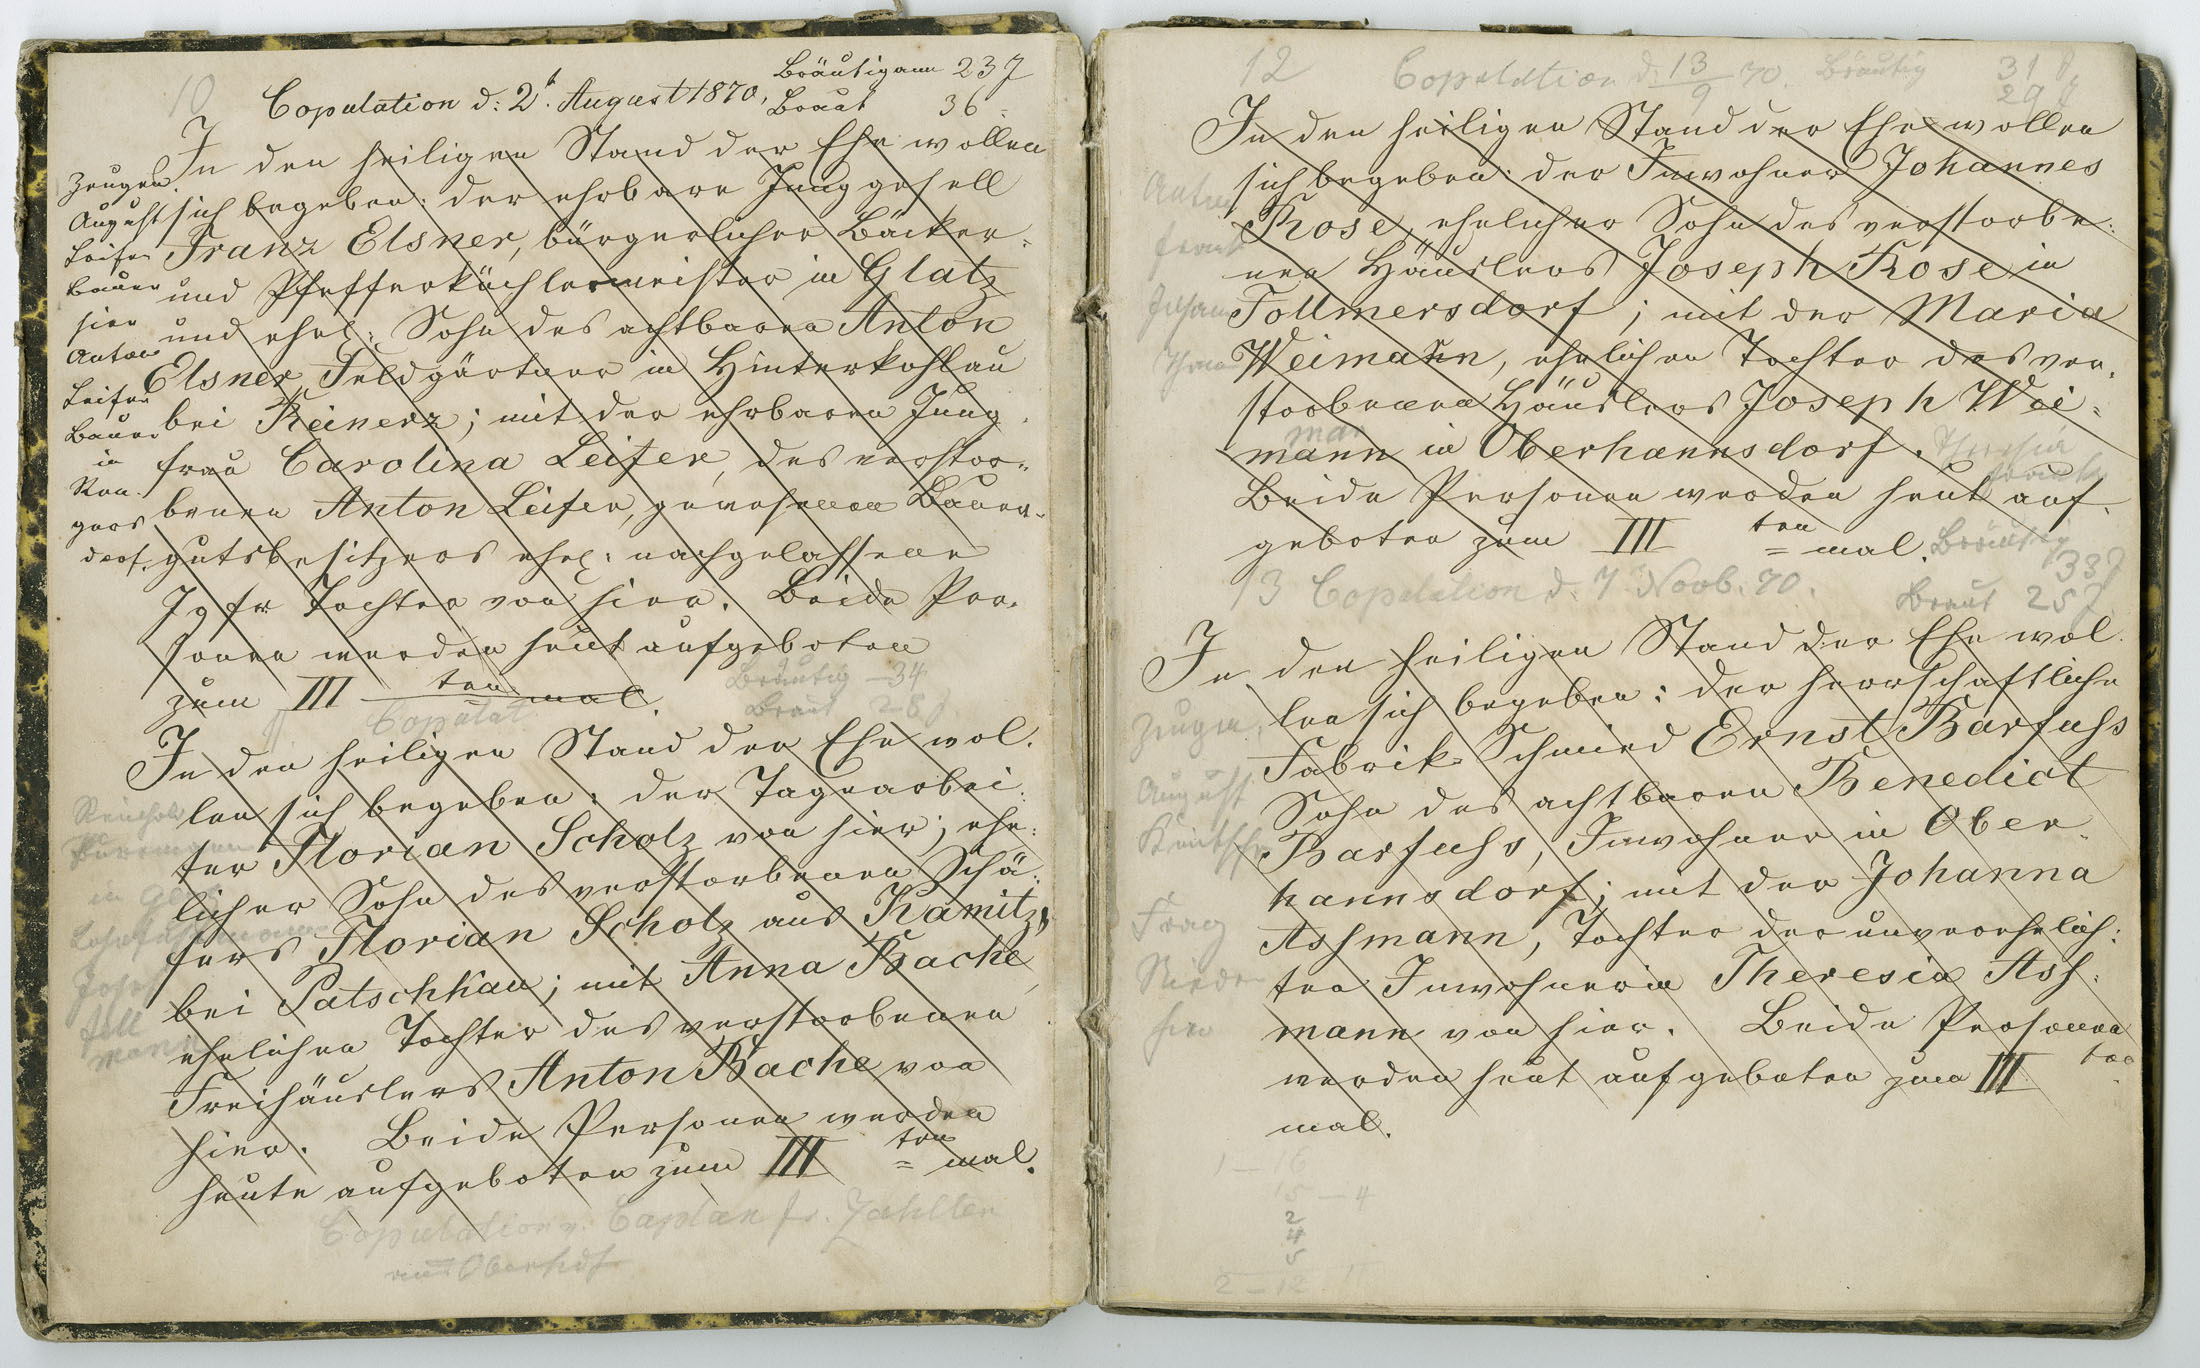 10 Copulation d: 2t. August 1870, Bräutigam 23 J
Braut 36 -
In den heiligen Stand der Ehe wollen
sich begeben: der ehrbare Junggesell
Franz Elsner, bürgerlicher Bäcker-
und Pfefferküchlermeister in Glatz
und ehel: Sohn des achtbaren Anton
Elsner, Feldgärtner in Hinterkohlau
bei Reinerz; mit der ehrbaren Jung-
frau Carolina Leifer, des verstor-
benen Anton Leifer, gewesenen Bauer-
gutsbesitzers ehel: nachgelassene
Jgfr Tochter von hier. Beide Per-
sonen werden heut aufgeboten
zum III ten = mal.
Zeugen
August
Leifer
Bauer
hier
Anton
Leifer
Bauer
in
Ren-
gers
dorf.
11 Copulat Bräutig - 34
Braut 28 J
In den heiligen Stand der Ehe wol-
len sich begeben: der Tagearbei-
ter Florian Scholz von hier; ehe-
licher Sohn des verstorbenen Schä-
fers Florian Scholz aus Kamitz,
bei Patschkau; mit Anna Bache,
ehelichen Tochter des verstorbenen
Freihäuslers Anton Bache von
hier. Beide Personen werden
heute aufgeboten zum III ten = mal.
Reinhold
in
Josef
mann
Copulation v. Caplan
aus Oberhdf
12 Copulation d: 13/9 70. Bräutig 31 J
29 J
In den heiligen Stand der Ehe wollen
sich begeben: der Inwohner Johannes
Rose, ehelicher Sohn des verstorbe-
nen Häuslers Joseph Rose in
Follmersdorf; mit der Maria
Weimann, ehelichen Tochter des ver-
storbenen Häuslers Joseph Wei-
man
mann in Oberhannsdorf. Thersia
Beide Personen werden heut auf-
geboten zum III ten = mal.
Anton
Franz
Johann
13 Copulation d. 7. Novb. 70. Bräutig 33 J
Braut 25 J
In den heiligen Stand der Ehe wol-
len sich begeben: der herrschaftliche
Fabrik-Schmied Ernst Barfuhs
Sohn des achtbaren Benedict
Barfuhs, Inwohner in Ober-
hannsdorf; mit der Johanna
Ashmann, Tochter der unverehelich-
ten Inwohnerin Theresia Ash-
mann von hier. Beide Personen
werden heut aufgeboten zum III ten
mal.
Zeugen
August
Franz
hier
1 - 16
15 - 4
2
4
5
2 - 12